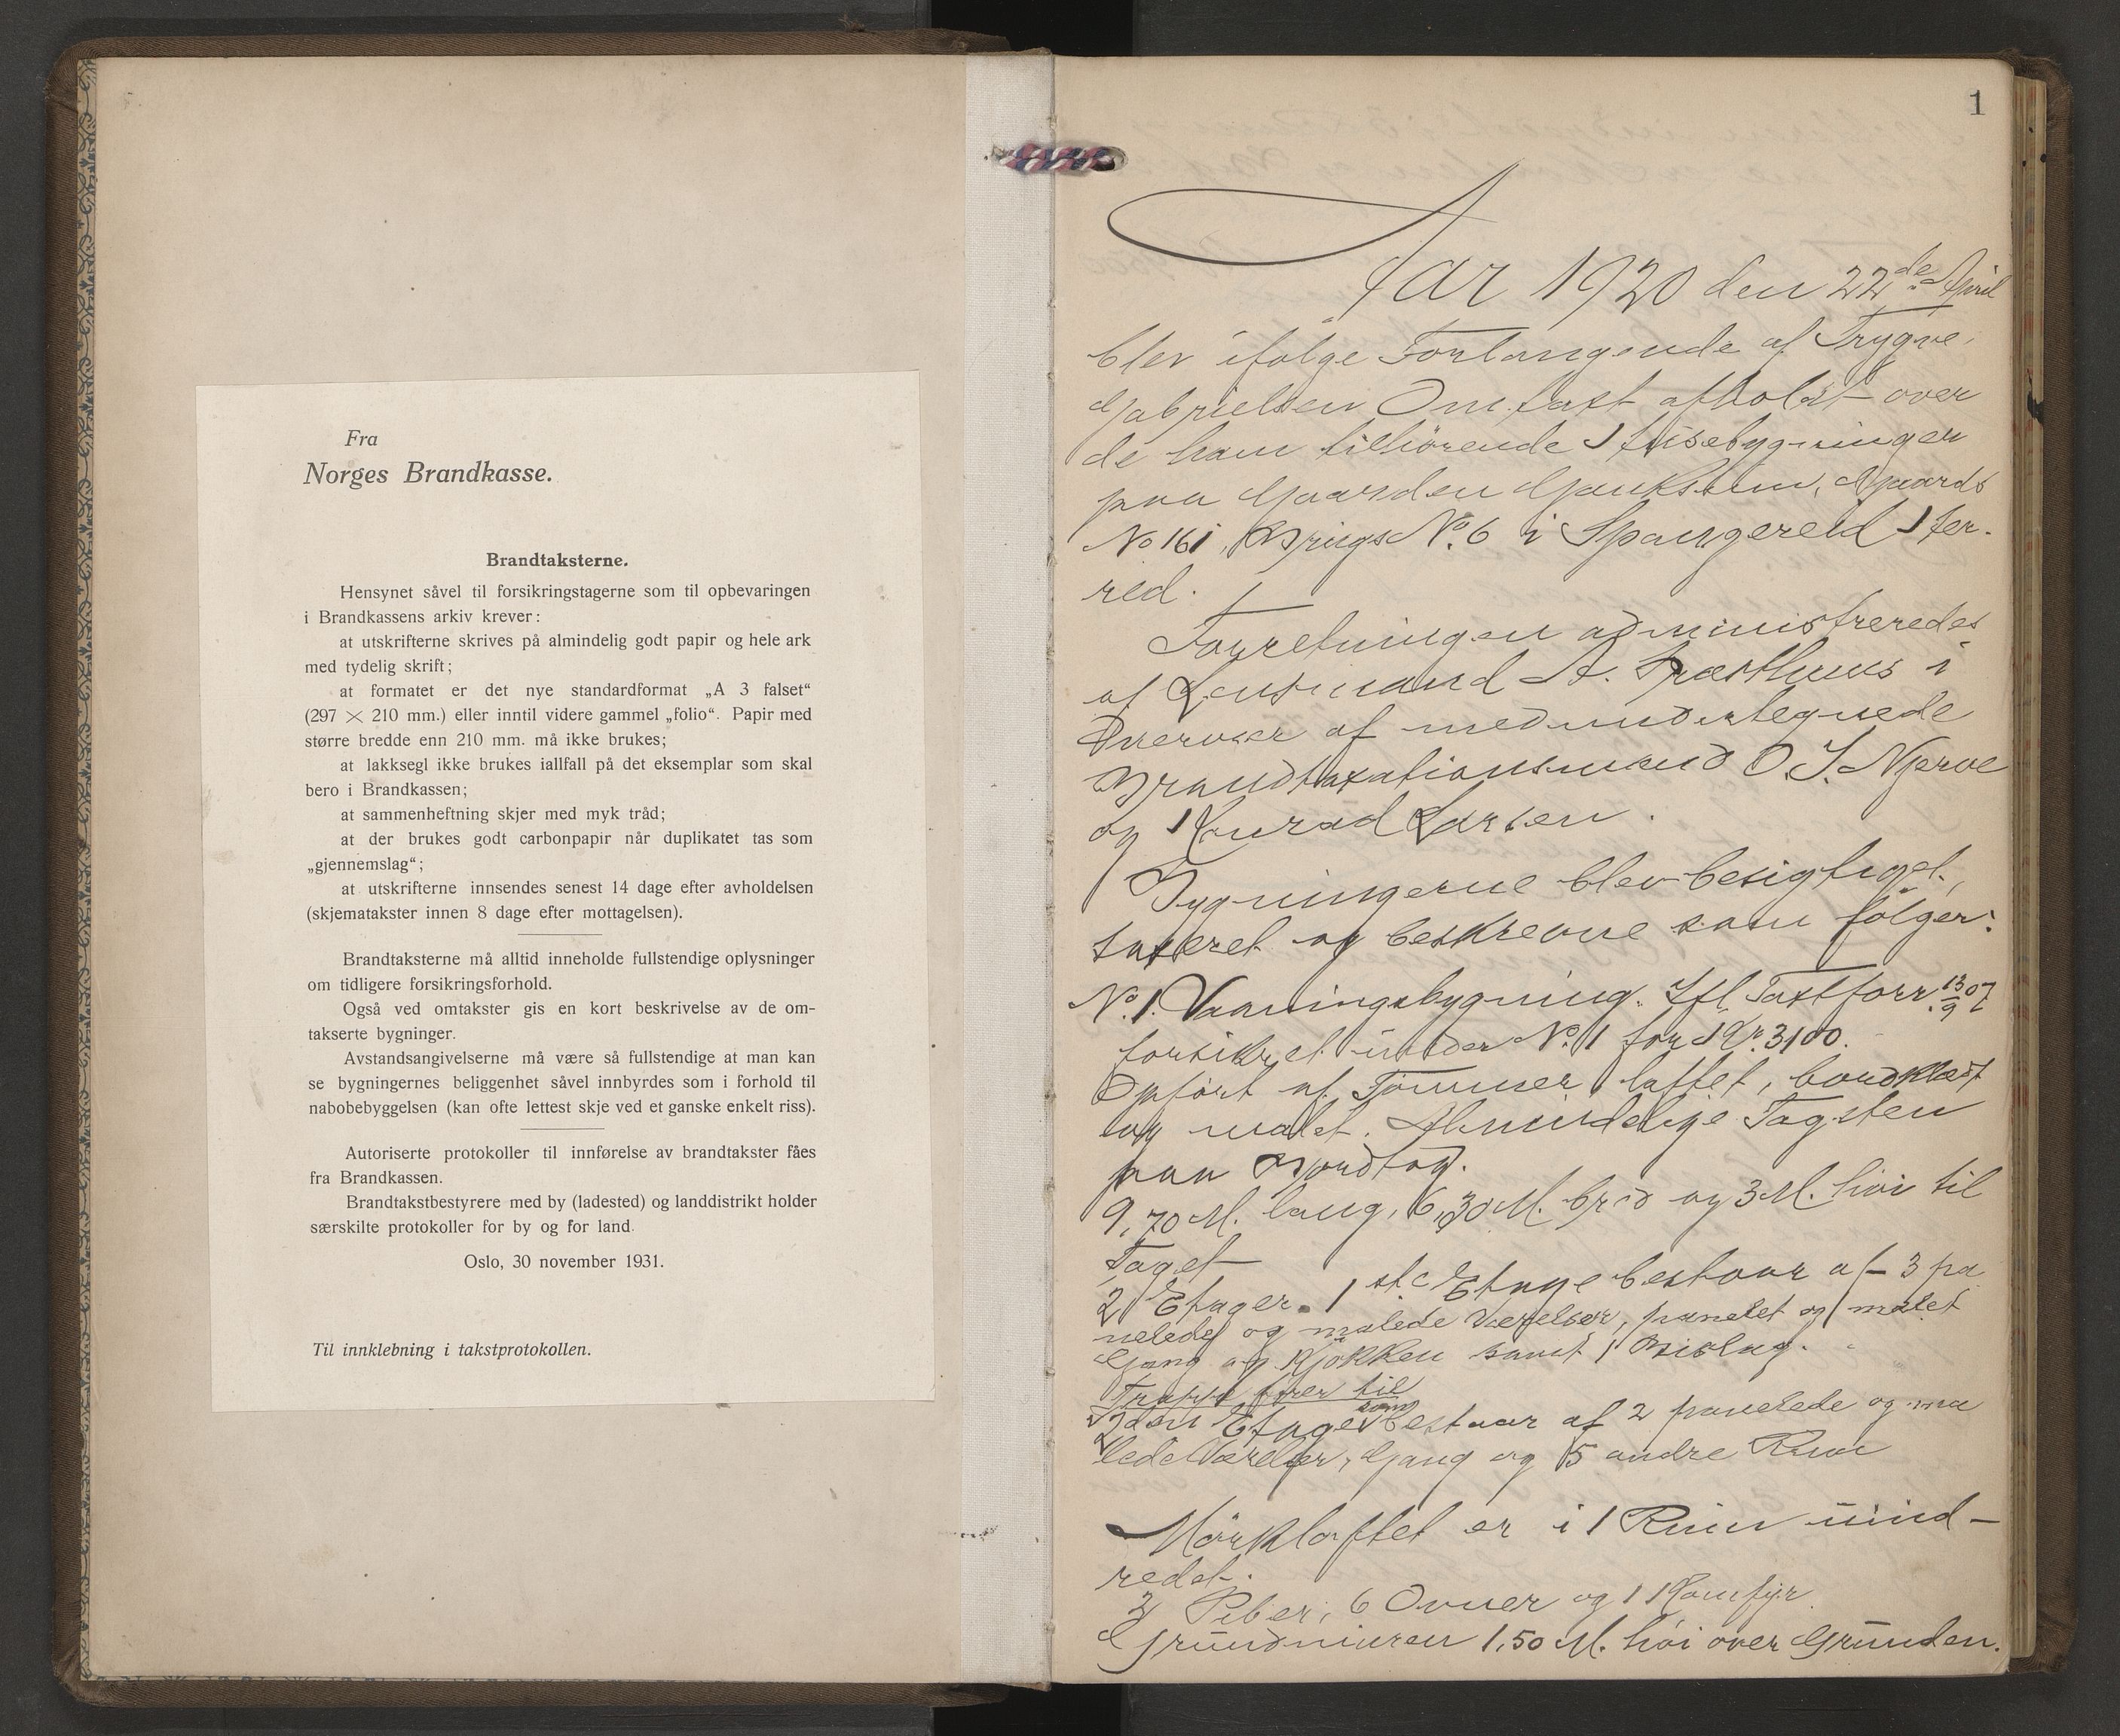 Fra
Norges Brandkasse.
Brandtaksterne.
Hensynet såvel til forsikringstagerne som til opbevaringen
i Brandkassens arkiv krever:
at utskrifterne skrives på almindelig godt papir og hele ark
med tydelig skrift;
at formatet er det nye standardformat „A 3 falset“
(297 × 210 mm.) eller inntil videre gammel „folio“. Papir med
større bredde enn 210 mm. må ikke brukes;
at lakksegl ikke brukes iallfall på det eksemplar som skal
bero i Brandkassen;
at sammenheftning skjer med myk tråd;
at der brukes godt carbonpapir når duplikatet tas som
„gjennemslag“;
at utskrifterne innsendes senest 14 dage efter avholdelsen
(skjematakster innen 8 dage efter mottagelsen).
Brandtaksterne må alltid inneholde fullstendige oplysninger
om tidligere forsikringsforhold.
Også ved omtakster gis en kort beskrivelse av de om-
takserte bygninger.
Avstandsangivelserne må være så fullstendige at man kan
se bygningernes beliggenhet såvel innbyrdes som i forhold til
nabobebyggelsen (kan ofte lettest skje ved et ganske enkelt riss).
Autoriserte protokoller til innførelse av brandtakster fåes
fra Brandkassen.
Brandtakstbestyrere med by (ladested) og landdistrikt holder
særskilte protokoller for by og for land.
Oslo, 30 november 1931.
Til innklebning i takstprotokollen.
1
Aar 1920 den 22de April
blev ifølge Forlangende af Trygve
Gabrielsen Omtaxt afholdt over
de ham tilhörende Husebygninger
paa Gaarden Gaukstum, Gaards
No 161, Brugs No. 6 i Spangereid Her-
red.
Forretningen administreredes
af Lensmand A. Præsthuus i
Overvær af medundertegnede
Brandtaxationsmænd O. J. Njerve
og Konrad Larsen.
Bygningerne blev besigtiget,
taxeret og beskrevne som følger:
No. 1. Vaaningsbygning. Ifl. Taxtforr. 13/9 07
forsikret under No. 1 for Kr. 3100.
Opført af Tømmer, laftet, bordklædt
og malet. Almindelige Tagsten
paa Bordtag.
9,70 M. lang, 6,30 M. bred og 3 M. höi til
Taget
2 Etager. 1ste Etage bestaar af 3 pa
nelede og malede Værelser, panelet og malet
Gang og Kjøkken samt 1 Bislag.
Trappe fører til
2den Etage som bestaar af 2 panelede og ma
lede Værelser, Gang og 5 andre Rum
Mörkloftet er i 1 Rum uind-
redet.
2 Piber, 6 Ovner og 1 Komfyr
Grundmuren 1,50 M. höi over Grunden.